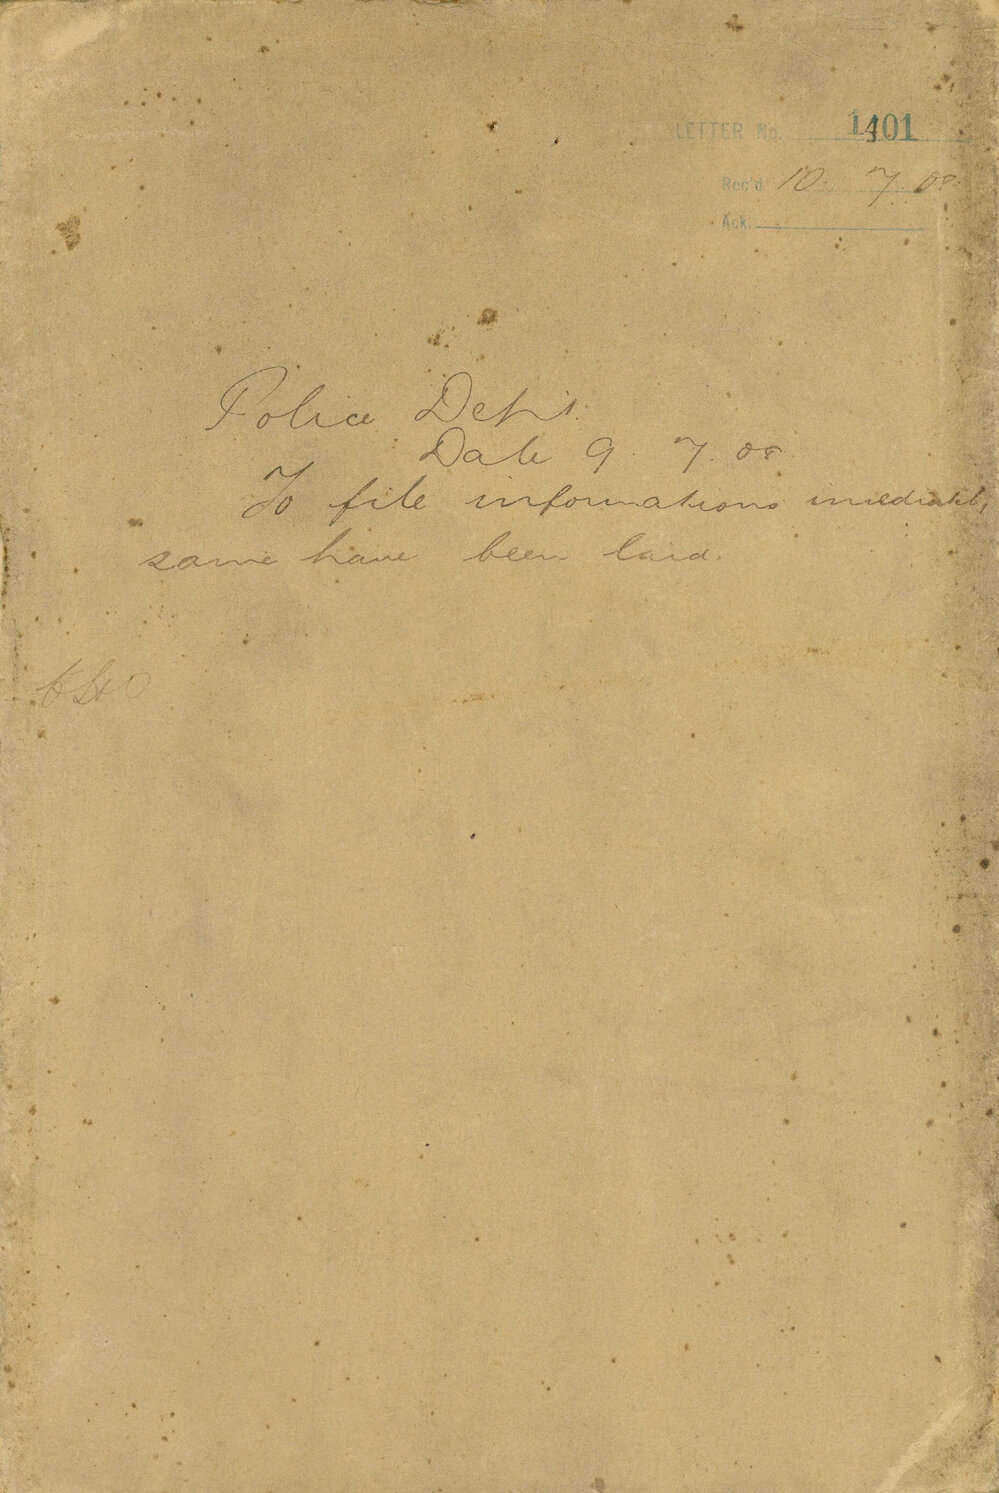 LETTER No. 1401
Rec'd 10. 7. 08
Ack.
Police Dept.
Date 9. 7. 08
To file informations immediately
same have been laid.